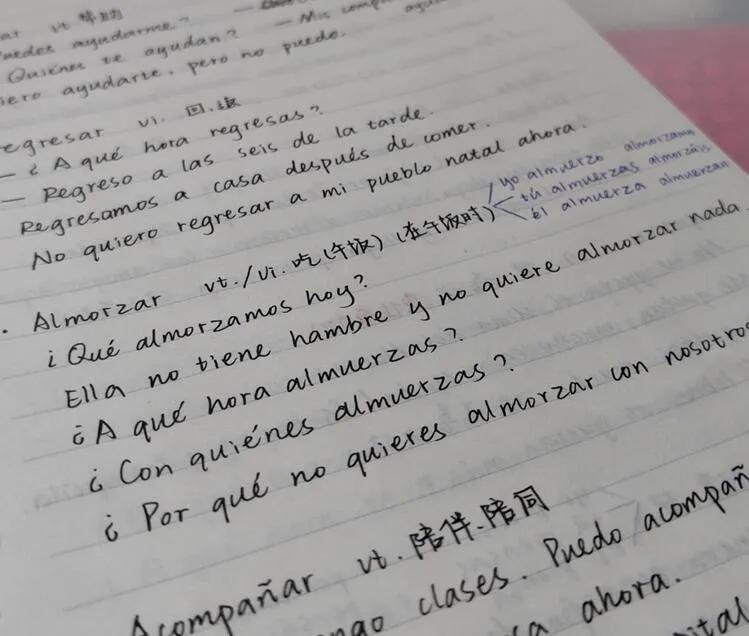 vt 帮助
ayudarme? —
Quiénes te ayudan? — Mis
ayudarte, pero no puedo.
regresar vi. 回.返
— ¿A qué hora regresas?
— Regreso a las seis de la tarde.
Regresamos a casa después de comer.
No quiero regresar a mi pueblo natal ahora.
yo almuerzo almorzamos
tú almuerzas almorzáis
él almuerza almuerzan
. Almorzar vt./vi. 吃(午饭) (在午饭时)
¿Qué almorzamos hoy?
Ella no tiene hambre y no quiere almorzar nada.
¿A qué hora almuerzas?
¿Con quiénes almuerzas?
¿Por qué no quieres almorzar con nosotros
Acompañar vt. 陪伴.陪同
clases. Puedo acompañ
ahora.